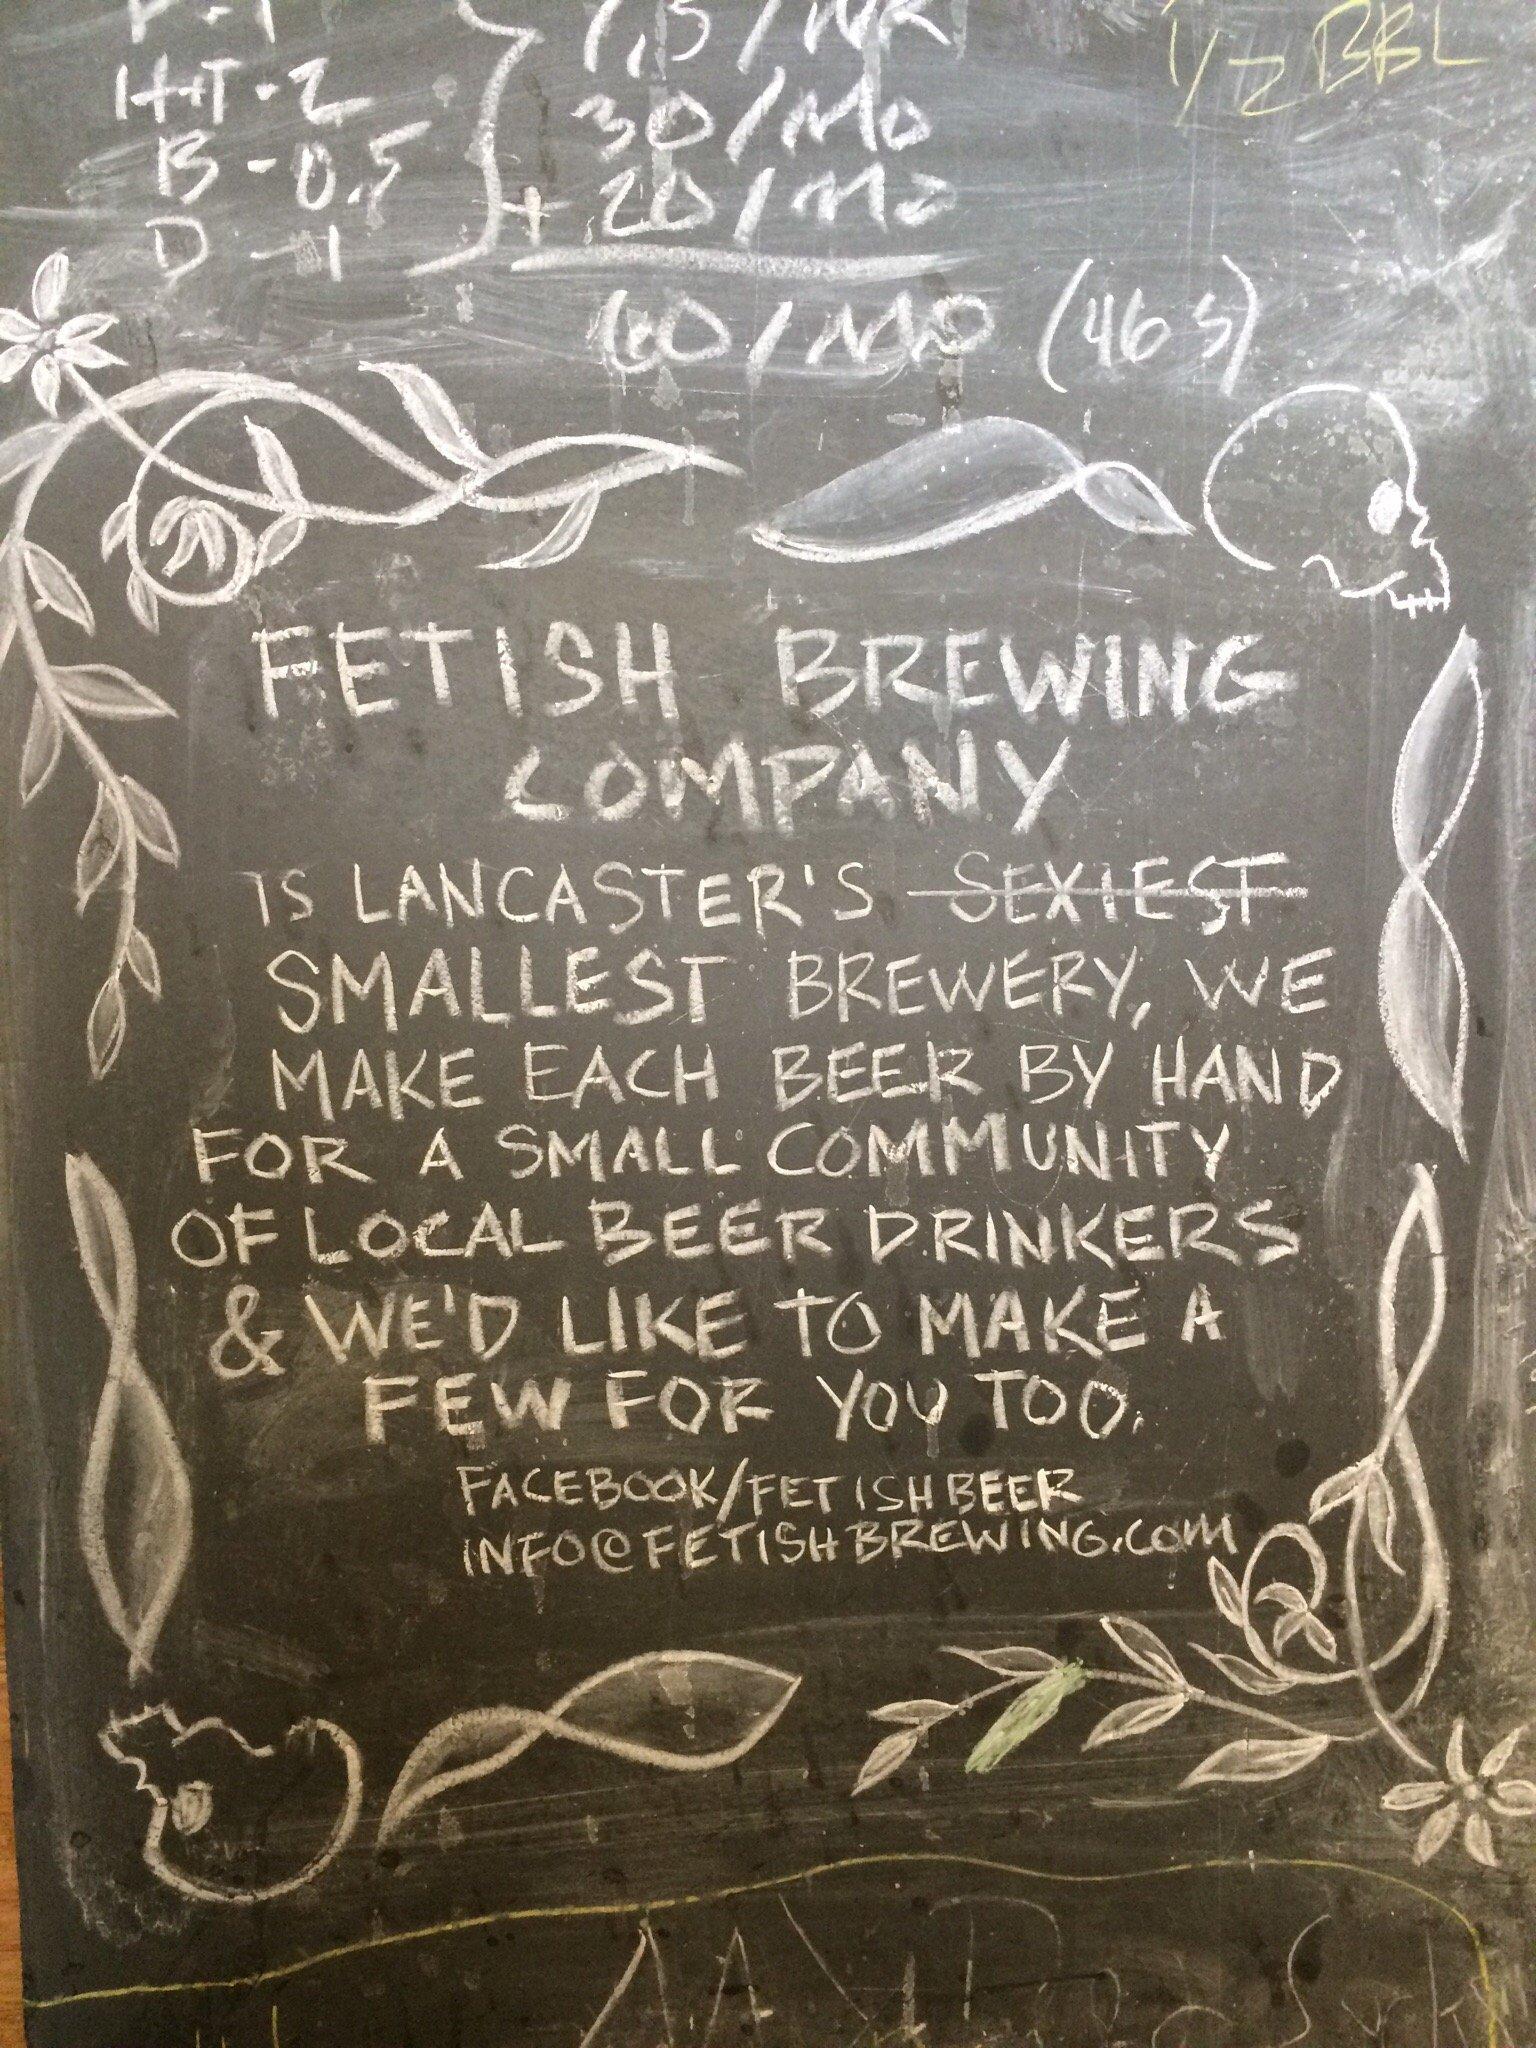 HHT - 2
30/MO
B - 0.5
+ 20/MO
D - 1
60/MO (46 s)
1/2 BBL
FETISH BREWING
COMPANY
IS LANCASTER'S SEXIEST
SMALLEST BREWERY, WE
MAKE EACH BEER BY HAND
FOR A SMALL COMMUNITY
OF LOCAL BEER DRINKERS
& WE'D LIKE TO MAKE A
FEW FOR YOU TOO.
FACEBOOK/FETISHBEER
INFO@FETISHBREWING.COM